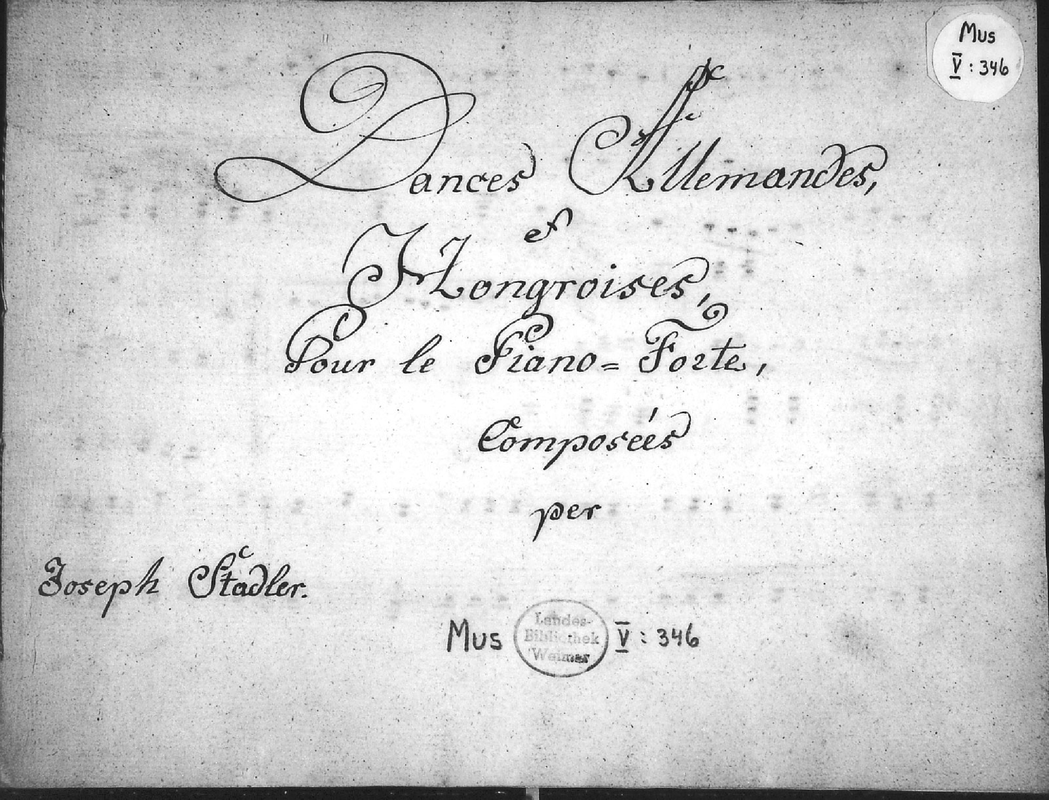 Mus
V : 346
Dances Allemandes,
et
Hongroises,
Pour le Piano= Forte,
Composées
per
Joseph Stadler.
Mus V : 346
Landes-
Bibliothek
Weimar